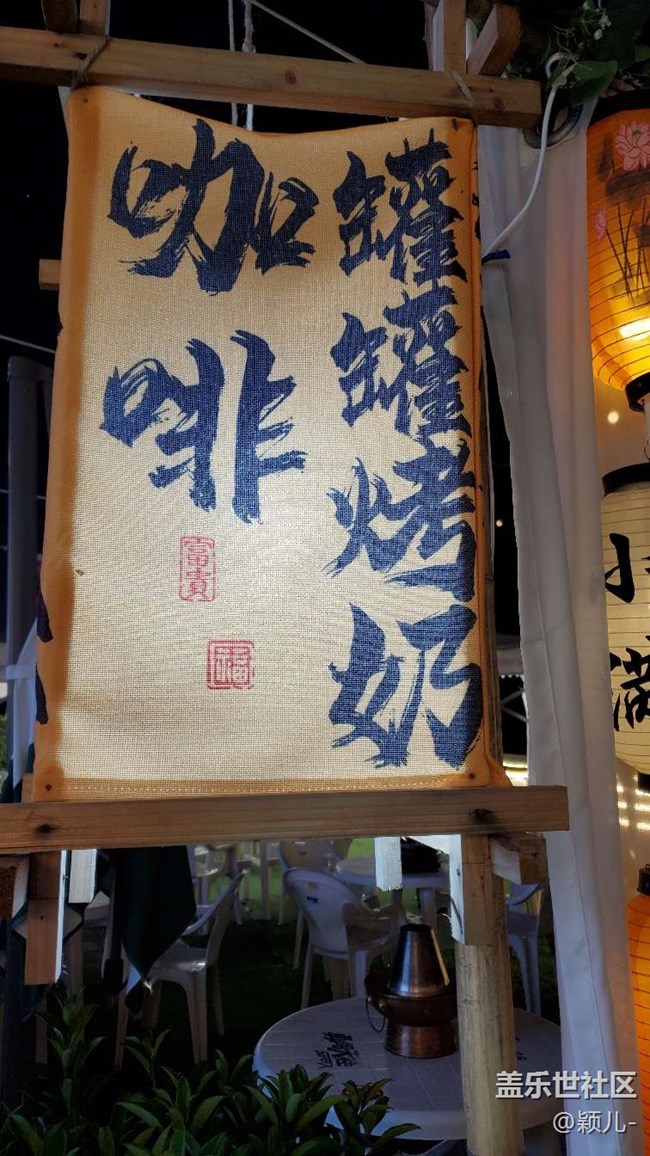 罐罐烤奶
咖啡
富貴
福
小
满
盖乐世社区
@颖儿-